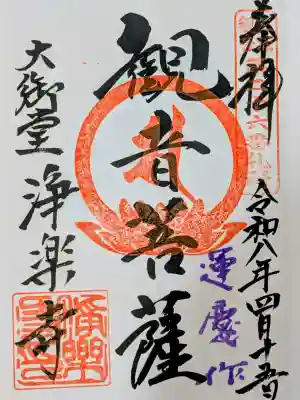 奉拝
令和八年四月十五日
運慶作
観音菩薩
大御堂
浄楽寺